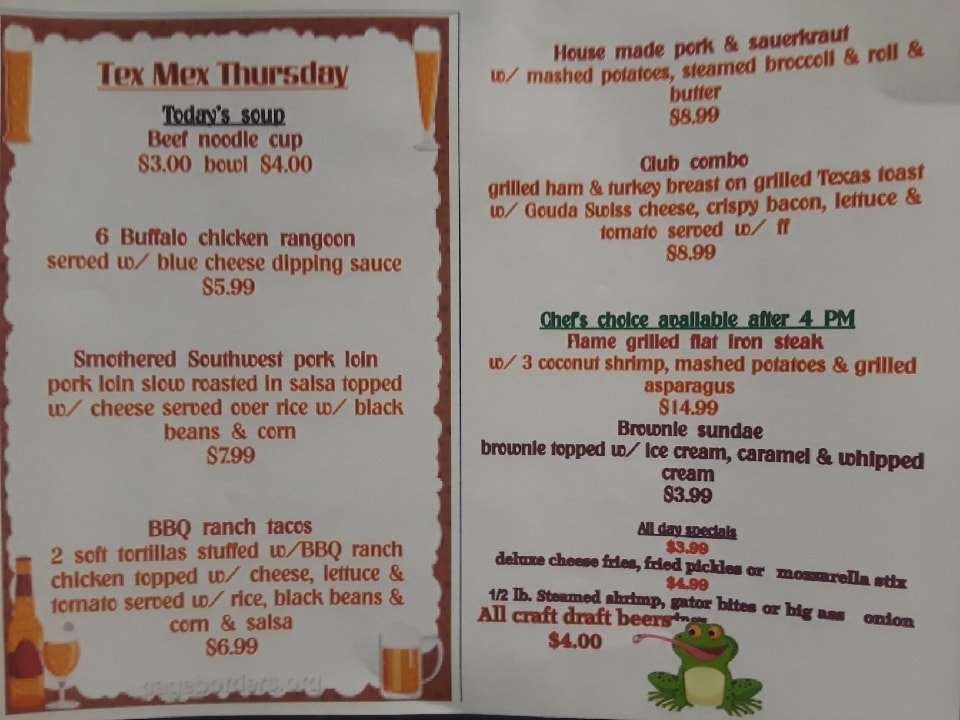 Tex Mex Thursday
Today's soup
Beef noodle cup
$3.00 bowl $4.00
6 Buffalo chicken rangoon
served w/ blue cheese dipping sauce
$5.99
Smothered Southwest pork loin
pork loin slow roasted in salsa topped
w/ cheese served over rice w/ black
beans & corn
$7.99
BBQ ranch tacos
2 soft tortillas stuffed w/BBQ ranch
chicken topped w/ cheese, lettuce &
tomato served w/ rice, black beans &
corn & salsa
$6.99
pageborders.org
House made pork & sauerkraut
w/ mashed potatoes, steamed broccoli & roll &
butter
$8.99
Club combo
grilled ham & turkey breast on grilled Texas toast
w/ Gouda Swiss cheese, crispy bacon, lettuce &
tomato served w/ ff
$8.99
Chef's choice available after 4 PM
Flame grilled flat iron steak
w/ 3 coconut shrimp, mashed potatoes & grilled
asparagus
$14.99
Brownie sundae
brownie topped w/ ice cream, caramel & whipped
cream
$3.99
All day specials
$3.99
deluxe cheese fries, fried pickles or mozzarella stix
$4.99
1/2 lb. Steamed shrimp, gator bites or big ass onion
All craft draft beers
$4.00